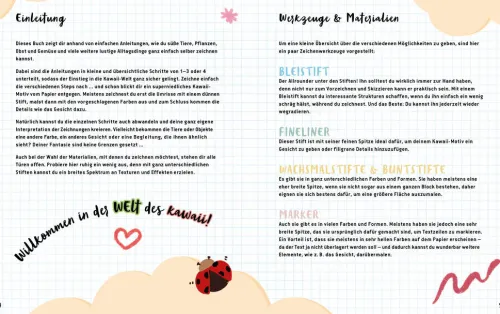 Einleitung
Dieses Buch zeigt dir anhand von einfachen Anleitungen, wie du süße Tiere, Pflanzen,
Obst und Gemüse und viele weitere lustige Alltagsdinge ganz einfach selber zeichnen
kannst.
Dabei sind die Anleitungen in kleine und übersichtliche Schritte von 1–3 oder 4
unterteilt, sodass der Einstieg in die Kawaii-Welt ganz sicher gelingt. Zeichne einfach
die verschiedenen Steps nach ... und schon blickt dir ein supermiedliches Kawaii-
Motiv vom Papier entgegen. Meistens zeichnest du erst die Umrisse mit einem dünnen
Stift, malst dann mit den vorgeschlagenen Farben aus und zum Schluss kommen die
Details wie das Gesicht dazu.
Natürlich kannst du die einzelnen Schritte auch abwandeln und deine ganz eigene
Interpretation der Zeichnungen kreieren. Vielleicht bekommen die Tiere oder Objekte
eine andere Farbe, ein anderes Gesicht oder eine Begleitung, die ihnen ähnlich
sieht? Deiner Fantasie sind keine Grenzen gesetzt ...
Auch bei der Wahl der Materialien, mit denen du zeichnen möchtest, stehen dir alle
Türen offen. Probiere hier ruhig ein wenig aus, denn mit ganz unterschiedlichen
Stiften kannst du ein breites Spektrum an Texturen und Effekten erzielen.
Willkommen in der WELT des kawaii!
Werkzeuge & Materialien
Um eine kleine Übersicht über die verschiedenen Möglichkeiten zu geben, sind hier
ein paar Zeichenwerkzeuge vorgestellt:
BLEISTIFT
Der Allrounder unter den Stiften! Ihn solltest du wirklich immer zur Hand haben,
denn nicht nur zum Vorzeichnen und Skizzieren kann er praktisch sein. Mit einem
Bleistift kannst du interessante Strukturen schaffen, wenn du ihn einfach ein wenig
schräg hältst, während du zeichnest. Und das Beste: Du kannst ihn jederzeit wieder
wegradieren.
FINELINER
Dieser Stift ist mit seiner feinen Spitze ideal dafür, um deinem Kawaii-Motiv ein
Gesicht zu geben oder filigrane Details hinzuzufügen.
WACHSMALSTIFTE & BUNTSTIFTE
Es gibt sie in ganz unterschiedlichen Farben und Formen. Sie haben meistens eine
eher breite Spitze, wenn sie nicht sogar aus einem ganzen Block bestehen, daher
eignen sie sich bestens dafür, um eine größere Fläche auszumalen.
MARKER
Auch sie gibt es in vielen Farben und Formen. Meistens haben sie jedoch eine sehr
breite Spitze, das sie ursprünglich dafür gemacht sind, um Textzeilen zu markieren.
Ein Vorteil ist, dass sie meistens in sehr hellen Farben auf dem Papier erscheinen –
da der Text ja nicht überlagert werden soll – und dadurch kannst du wunderbar weitere
Elemente, wie z. B. das Gesicht, darübermalen.